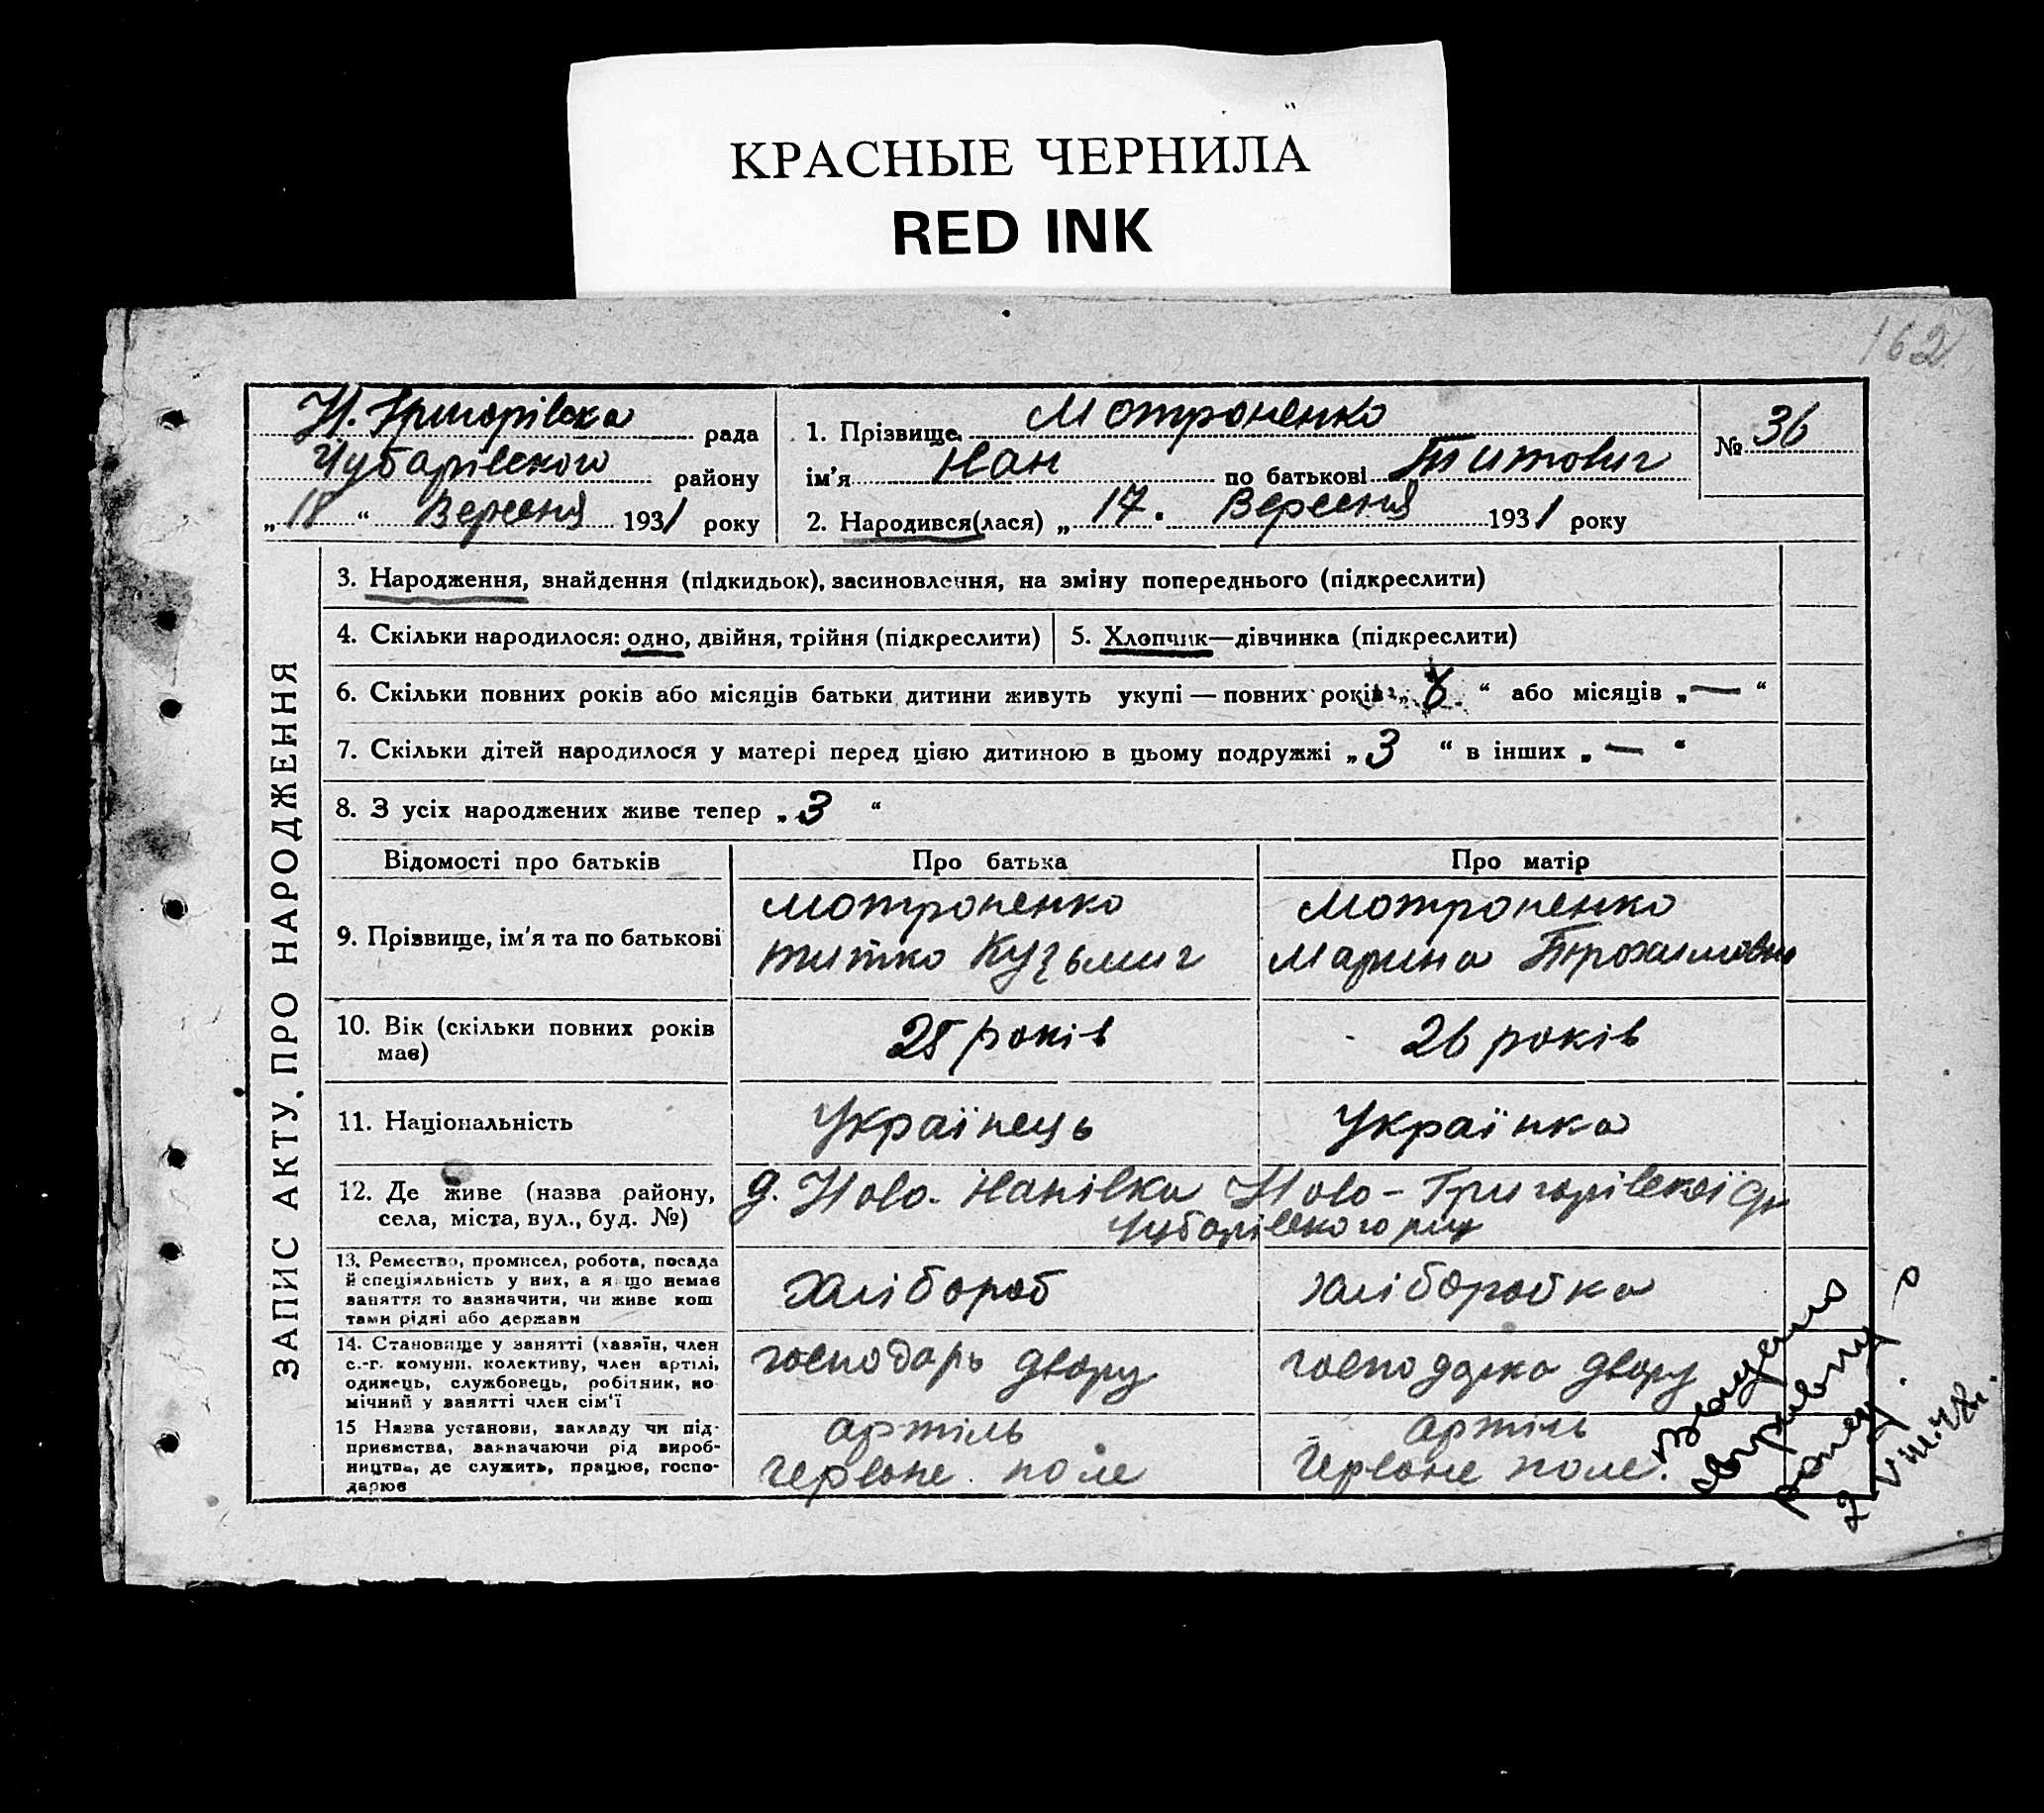 КРАСНЫЕ ЧЕРНИЛА
RED INK
162
Н. Григорівска рада
Чубарівского району
„ 18 “ Вересня 1931 року
1. Прізвище Мотроненко
ім'я Іван по батькові Титович
2. Народився(лася) „ 17. Вересня 1931 року
№ 36
ЗАПИС АКТУ ПРО НАРОДЖЕННЯ
3. Народження, знайдення (підкидьок), засиновлення, на зміну попереднього (підкреслити)
4. Скільки народилося: одно, двійня, трійня (підкреслити)
5. Хлопчик—дівчинка (підкреслити)
6. Скільки повних років або місяців батьки дитини живуть укупі — повних років „ “ або місяців „ — “
7. Скільки дітей народилося у матері перед цією дитиною в цьому подружжі „ 3 “ в інших „ — “
8. З усіх народжених живе тепер „ 3 “
Відомості про батьків Про батька Про матір
9. Прізвище, ім'я та по батькові
Мотроненко
Титко Кузьмич
Мотроненко
Марина Трохимовна
10. Вік (скільки повних років
має)
25 років
26 років
11. Національність
Українець
Українка
12. Де живе (назва району,
села, міста, вул., буд. №)
д. Ново-Іванівка Ново-Григорівскої с/р
Чубарівского р-ну
13. Ремество, промисел, робота, посада
й спеціяльність у них, а якщо немає
заняття то зазначити, чи живе кош
тами рідні або держави
Хлібороб
хліборобка
14. Становище у занятті (хазяїн, член
с.-г. комуни, колективу, член артілі,
одинець, службовець, робітник, по
мічний у занятті член сім'ї
господарь двору
господарка двору
15 Назва установи, закладу чи під-
приємства, зазначаючи рід вироб-
ництва, де служить, працює, госпо-
дарює
артіль
Червоне поле
артіль
Червоне поле.